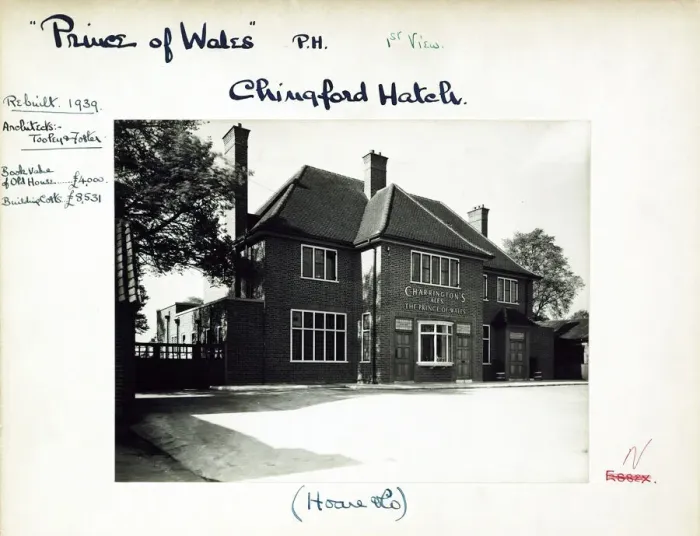 "Prince of Wales" P.H. 1st View.
Chingford Hatch.
Rebuilt. 1939.
Architects:-
Tooley & Foster
Book Value
of Old House......£4,000.
Building Costs £8,531
CHARRINGTON'S
ALES
THE PRINCE OF WALES
(Hoare & Co)
N
Essex.